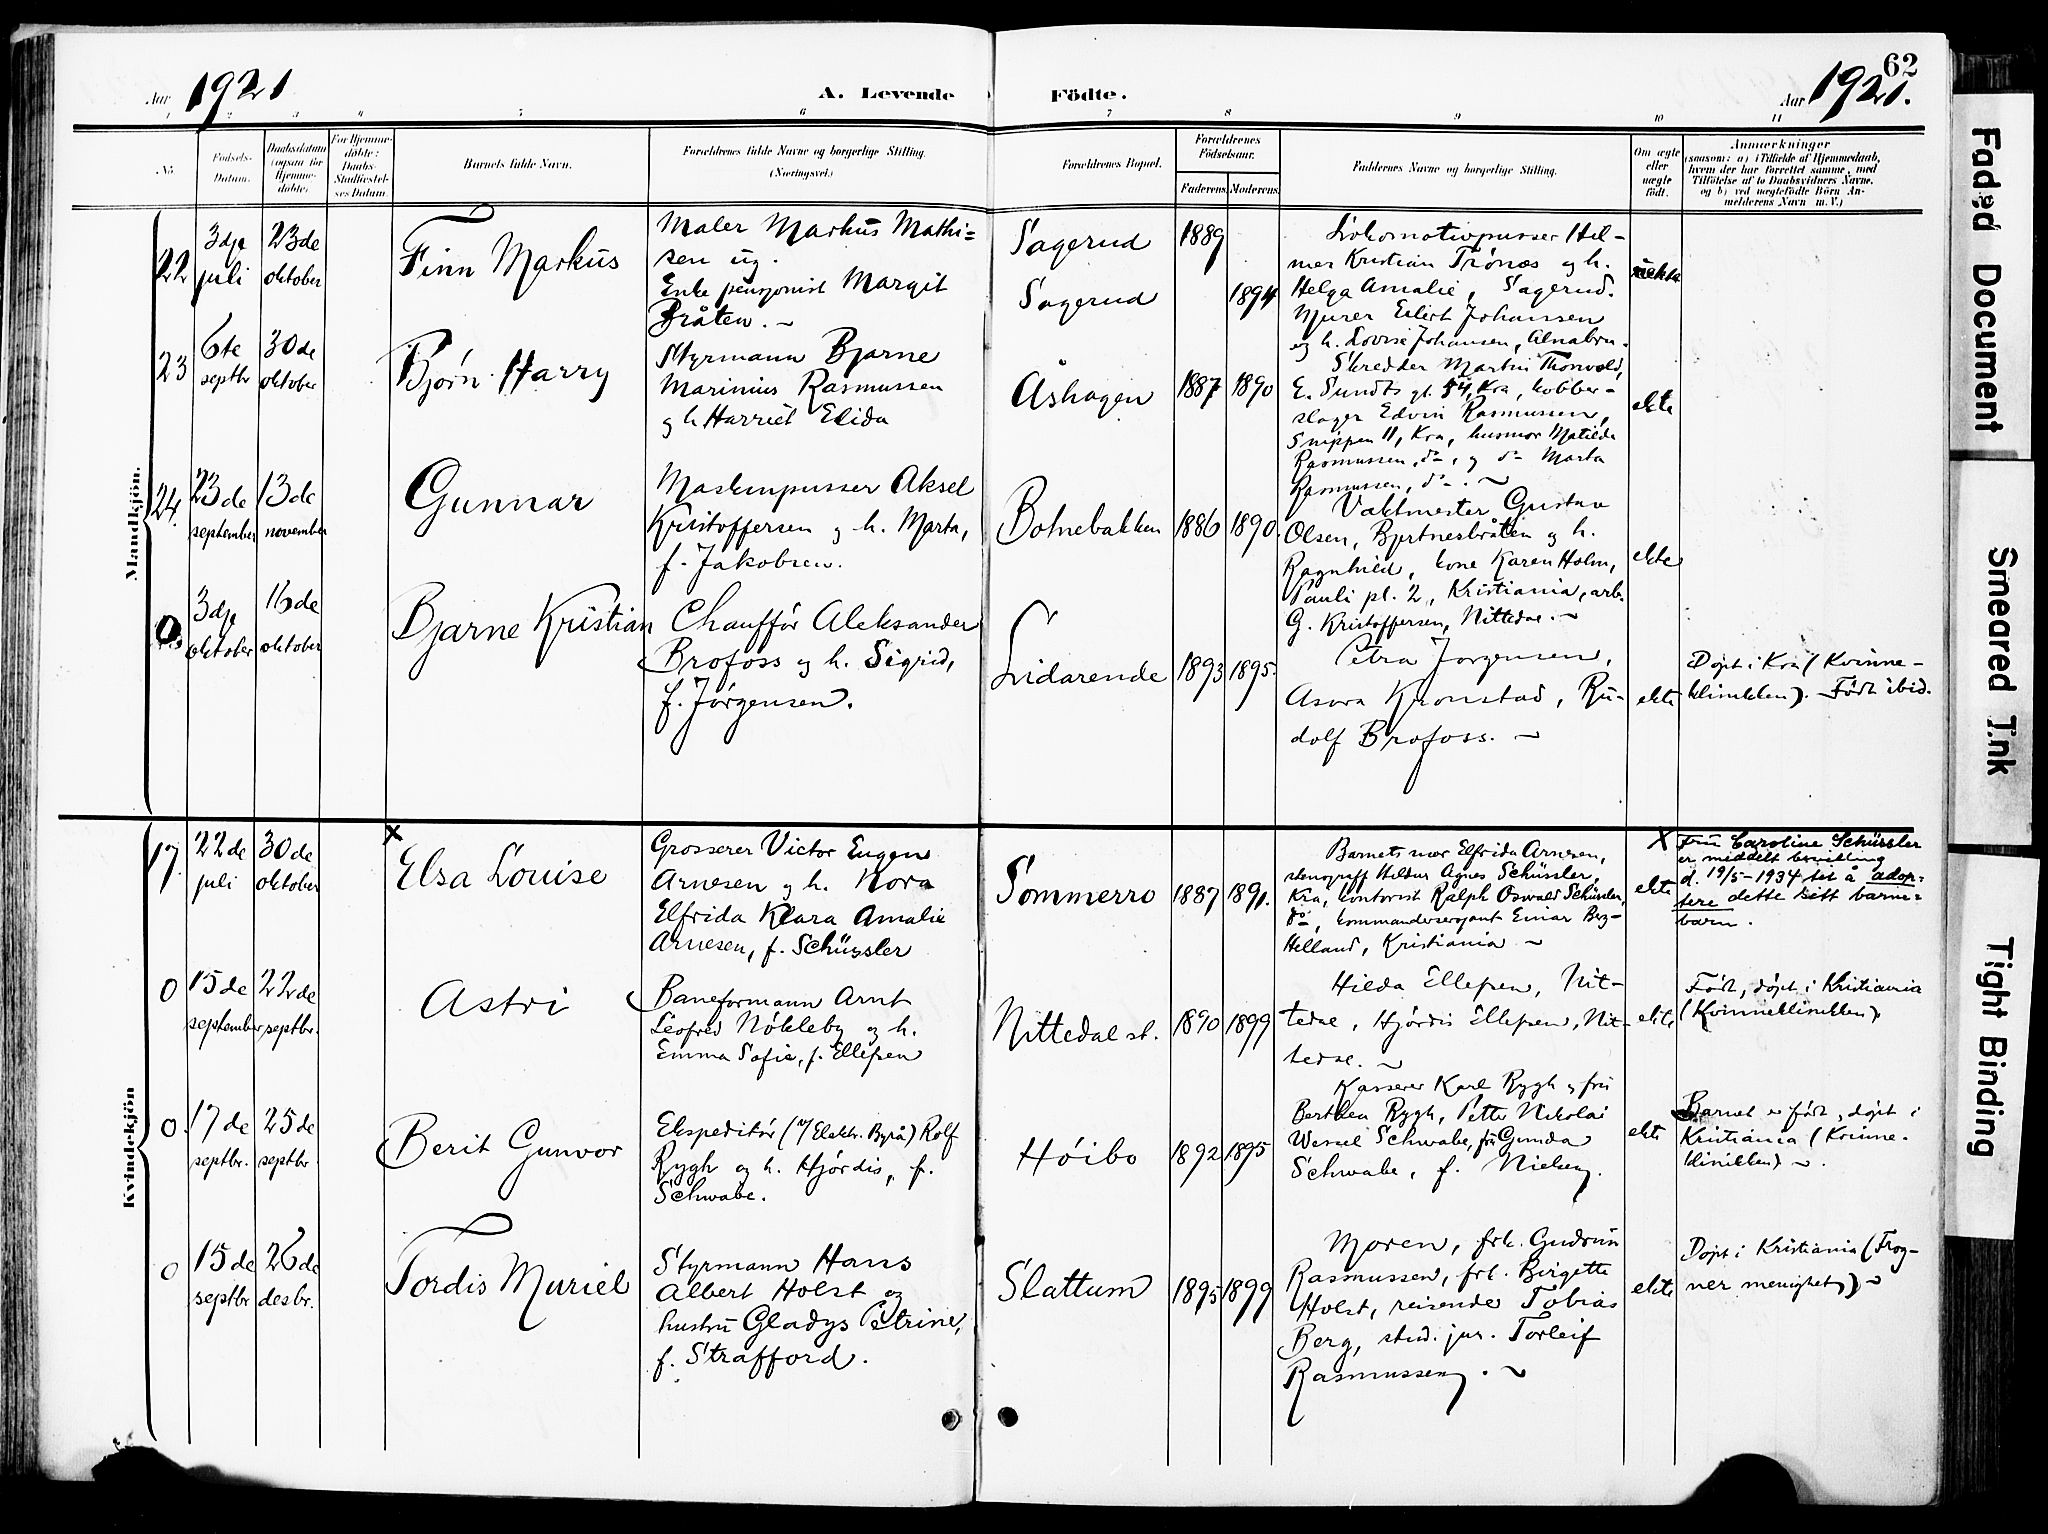 Aar 1921 A. Levende Födte. Aar 1921. 62
1 2 3 4 5 6 7 8 9 10 11
No. Fødsels-Datum. Daabsdatum (ogsaa for Hjemme-døbte) For Hjemme-døbte: Daabs-Stadfæstel-ses Datum. Barnets fulde Navn. Forældrenes fulde Navne og borgerlige Stilling. (Næringsvei.) Forældrenes Bopæl. Forældrenes Fødselsaar. Faderens. Moderens. Faddernes Navne og borgerlige Stilling. Om ægte eller uægte født. Anmærkninger
(saasom: a) i Tilfælde af Hjemmedaab,
hvem der har forrettet samme, med
Tilføielse af to Daabsvidners Navne,
og b) ved uægtefødte Börn An-
melderens Navn m. V.)
Mandkjön.
22 3dje juli 23de oktober Finn Markus
Maler Markus Mathi=
sen ug.
Enke pensjonist Margit
Bråten. ~
Sagerud 1889
Sagerud 1894
Lokomotivpusser Hil-
mer Kristian Trönæs og h.
Helga Amalie, Sagerud.
Murer Eilert Johansen
og h. Lovise Johansen, Alnabru.
uekte
23 6te septbr 30de oktober Bjørn Harry
Styrmann Bjarne
Marinius Rasmussen
og h Harriet Elida
Åshagen 1887 1890
Skredder Martin Thorvald,
E. Sundts gt. 54, Kra, kobber-
slager Edvin Rasmussen,
Snippen 11, Kra, husmor Matilda
Rasmussen, do, og do Marta
Rasmussen, do. ~
ekte
24. 23de september 13de november Gunnar
Maskinpusser Aksel
Kristoffersen og h. Marta,
f. Jakobsen.
Botnebakken 1886 1890.
Vaktmester Gustav
Olsen, Bjertnesbråten og h.
Ragnhild, kone Karen Holm,
Pauli pl. 2, Kristiania, arb.
G. Kristoffersen, Nittedal. ~
ekte
0 3dje oktober 16de oktober Bjarne Kristian
Chauffør Aleksander
Brofoss og h. Sigrid,
f. Jørgensen.
Lidarende 1893 1895.
Petra Jørgensen,
Asora Kronstad, Ru-
dolf Brofoss. ~
ekte
Døpt i Kra (Kvinne-
klinikken). - Født ibid.
Kvindekjön
17. 22de juli 30de oktober x Elsa Louise
Grosserer Victor Eugen
Arnesen og h. Nora
Elfrida Klara Amalie
Arnesen, f. Schüssler
Sommerro 1887 1891.
Barnets mor Elfrida Arnesen,
stenograff Heldur Agnes Schüssler,
Kra, kontorist Ralph Oswald Schüssler,
do, kommandersergant Einar Berg-
Helland, Kristiania ~
ekte
x Fru Caroline Schüssler
er meddelt bevilling
d. 19/5-1934 til å adop-
tere dette sitt barne-
barn.
0 15de september 22de septbr. Astri
Baneformann Arnt
Leofred Nökleby og h.
Emma Sofie, f. Ellefsen
Nittedal st. 1890 1899
Hilda Ellefsen, Nit-
tedal, Hjördis Ellefsen, Nit-
tedal. ~
ekte
Født, døpt i Kristiania
(Kvinneklinikken).
0. 17de septbr. 25de septbr. Berit Gunvor
Ekspeditör (v/ Elektr. Byrå) Rolf
Rygh og h. Hjördis, f.
Schwabe.
Höibo 1892 1895
Kasserer Karl Rygh og fru
Berthea Rygh, Petter Nikolai
Wessel Schwabe, fru Gunda
Schwabe, f. Nielsen.
ekte
Barnet er født, døpt i
Kristiania (Kvinne-
klinikken) ~.
0 15de septbr 26de desbr. Tordis Muriel
Styrmann Hans
Albert Holst og
hustru Gladys Petrine,
f. Strafford.
Slattum 1895 1899
Moren, frk. Gudrun
Rasmussen, frk. Birgette
Holst, reisende Tobias
Berg, stud. jur. Torleif
Rasmussen. ~
ekte
Døpt i Kristiania (Frog-
ner menighet) ~
Faded Document
Smeared Ink
Tight Binding